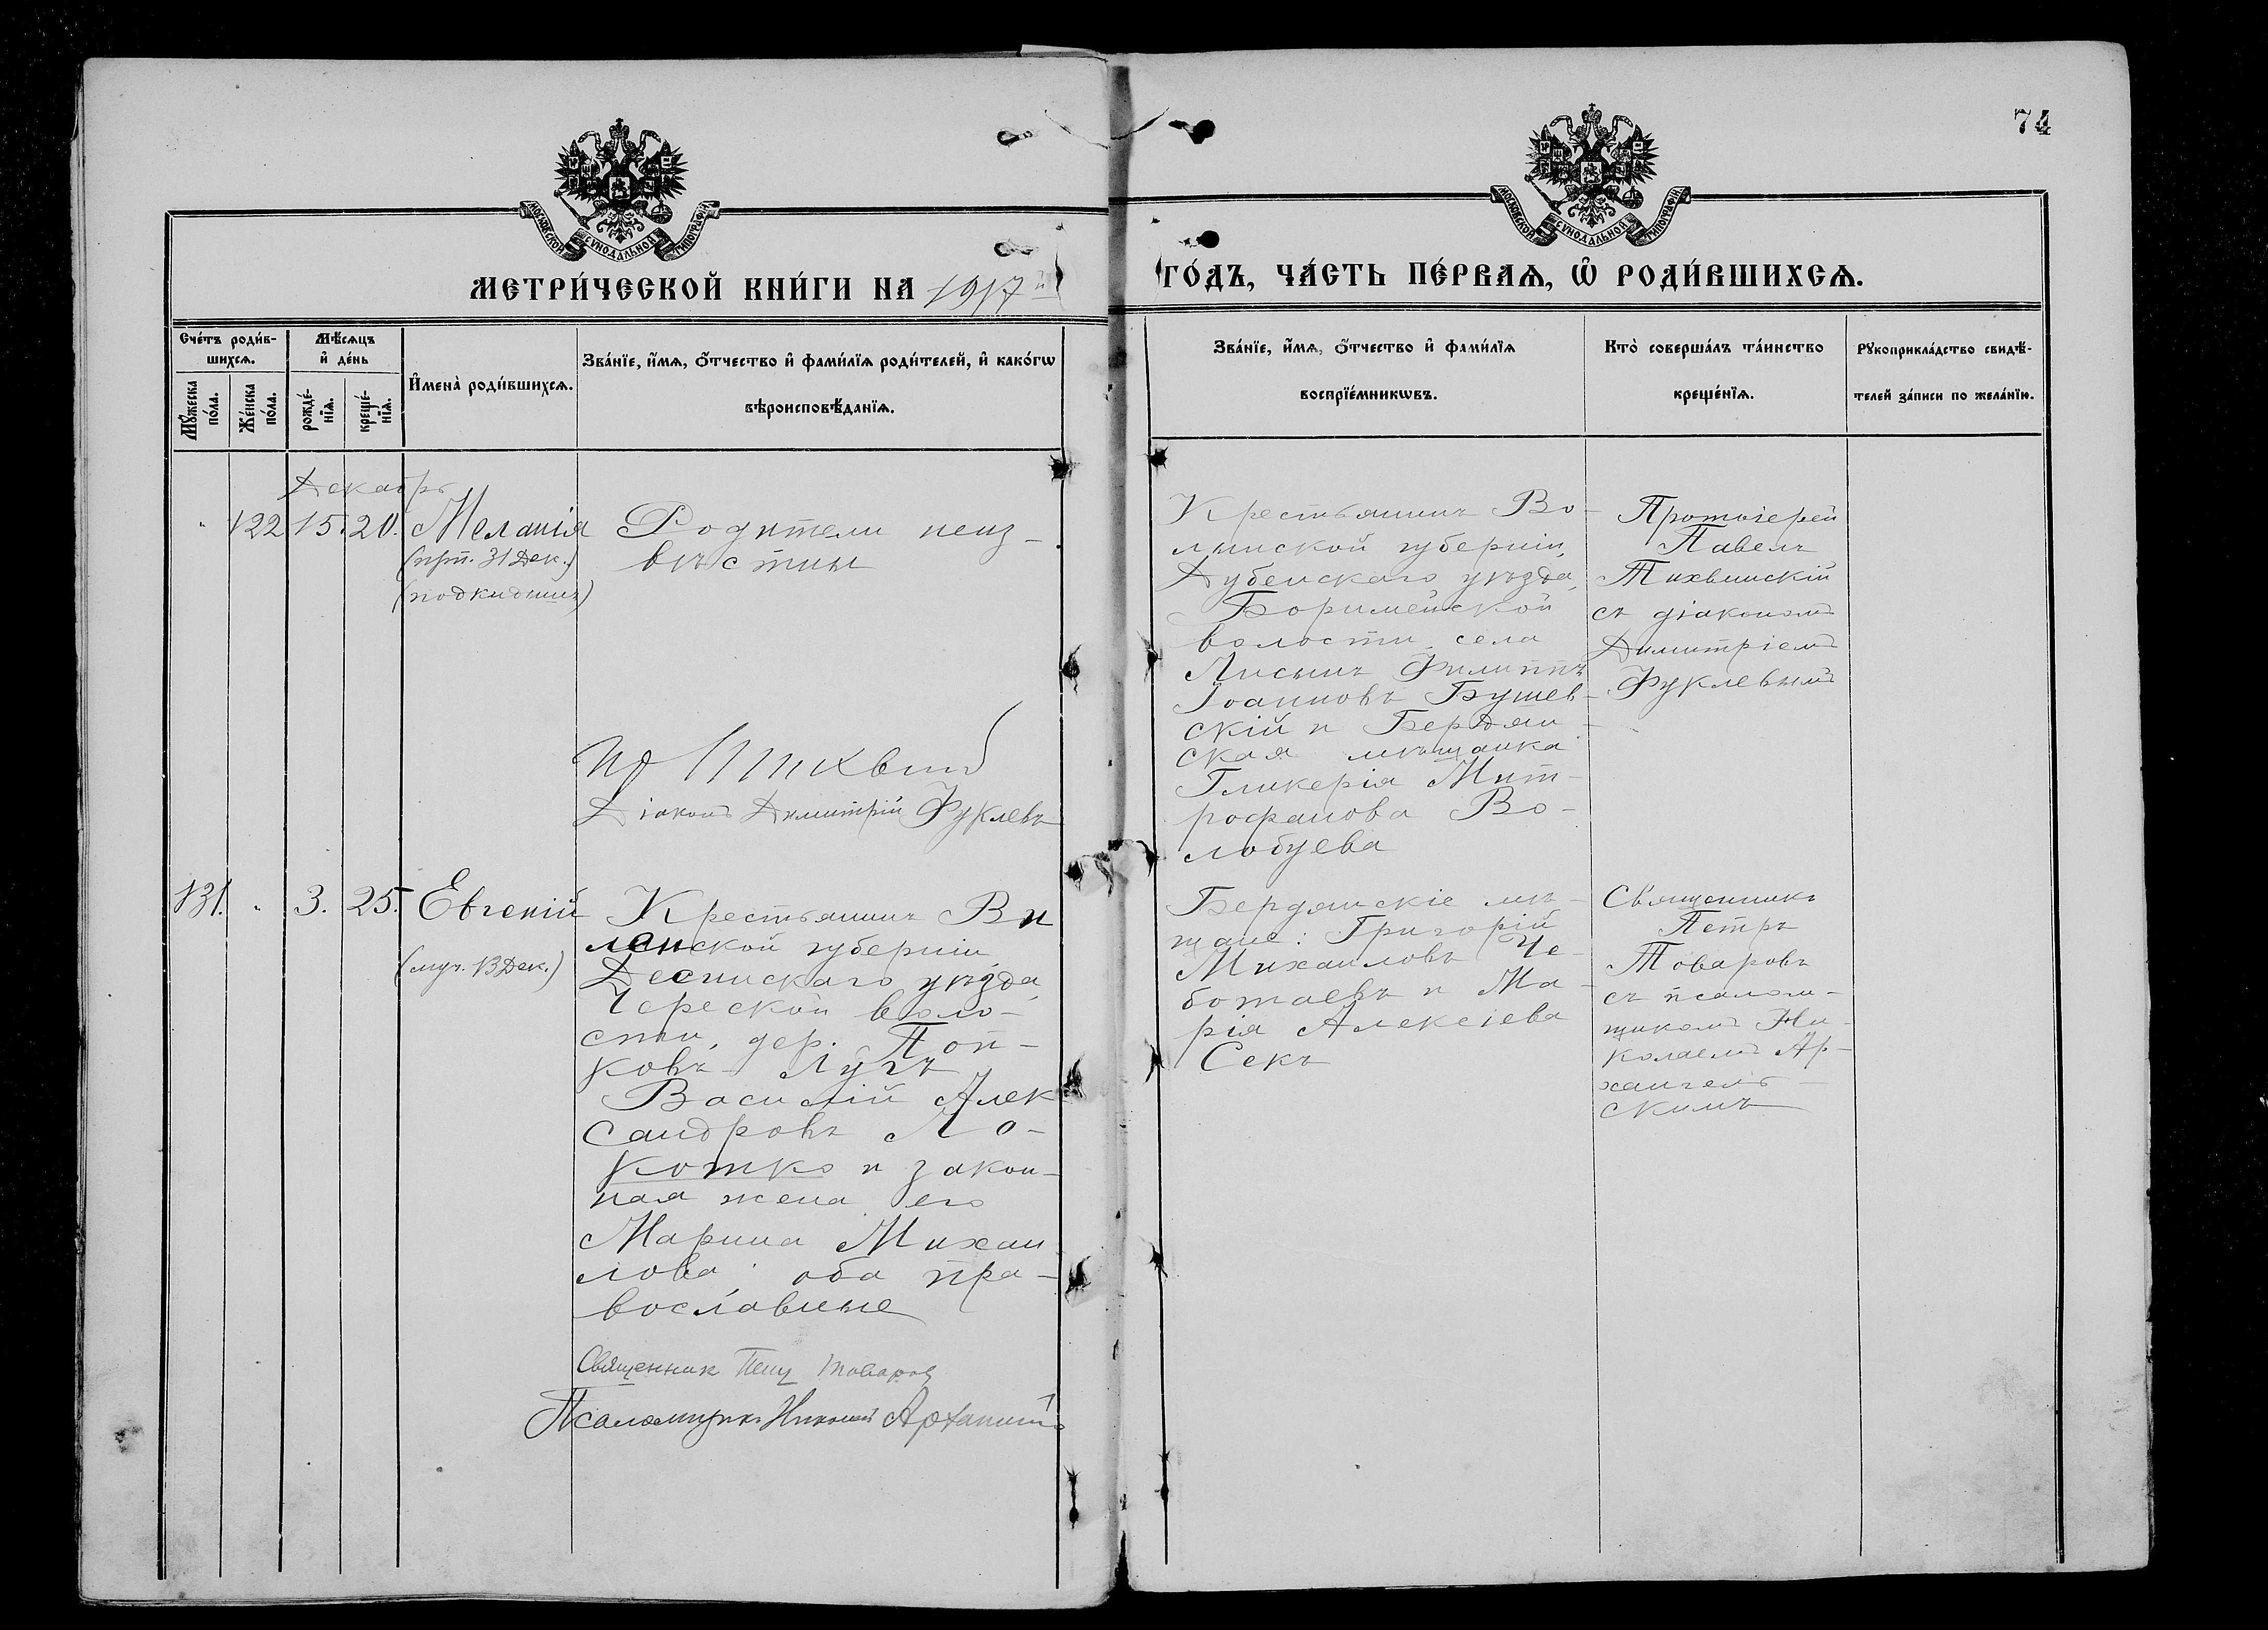 74
МОСКОВСКОЙ СѴНОДАЛЬНОЙ ТИПОГРАФІИ
МОСКОВСКОЙ СѴНОДАЛЬНОЙ ТИПОГРАФІИ
МЕТРИ́ЧЕСКОЙ КНИ́ГИ НА 1917й
ГО́ДЪ, ЧА́СТЬ ПЕ́РВАѦ, Ѡ҆ РОДИ́ВШИХСѦ.
Сче́тъ роди́в-
шихсѧ.
Мꙋ́жеска
по́ла.
Же́нска
по́ла.
Мѣ́сѧцъ
и҆ де́нь
рожде́-
нїѧ.
креще́-
нїѧ.
И҆мена̀ роди́вшихсѧ.
Зва́нїе, и҆́мѧ, ѻ҆́тчество и҆ фами́лїѧ роди́телей, и҆ како́гѡ
вѣроисповѣ́данїѧ.
Зва́нїе, и҆́мѧ, ѻ҆́тчество и҆ фами́лїѧ
воспрїе́мникѡвъ.
Кто̀ соверша́лъ та́инство
креще́нїѧ.
Рꙋкоприкла́дство свидѣ́-
телей за́писи по жела́нїю.
Декабрь
" 122 15. 20. Меланія
(прп. 31 Дек.)
(подкидышъ)
Родители неиз-
вѣстны
Діаконъ Димитрій Фуклевъ
Крестьянинъ Во-
лынской губерніи,
Дубенскаго уѣзда,
волости, села
Филиппъ
Іоанновъ Бушев-
скій и Бердян-
ская мѣщанка
Гликерія Мит-
рофанова Во-
лобуева
Протоіерей
Павелъ
Тихвинскій
съ діакономъ
Димитріемъ
Фуклевымъ
131. " 3. 25. Евгеній
(муч. 13 Дек.)
Крестьянинъ Ви
ленской губерніи,
Десписскаго уѣзда,
Череской воло-
сти, дер. Поп-
ковъ Лугъ
Василій Алек
сандровъ Ло-
котко и закон-
ная жена его
Марина Михаи
лова; оба пра-
вославные
Священник Петр Товаров
Псаломщикъ Николай
Бердянскіе мѣ-
щане: Григорій
Михаиловъ Че-
ботаевъ и Ма-
рія Алексіева
Секъ
Священникъ
Петръ
Товаровъ
съ псалом-
щикомъ Ни-
колаемъ Ар-
хангель-
скимъ